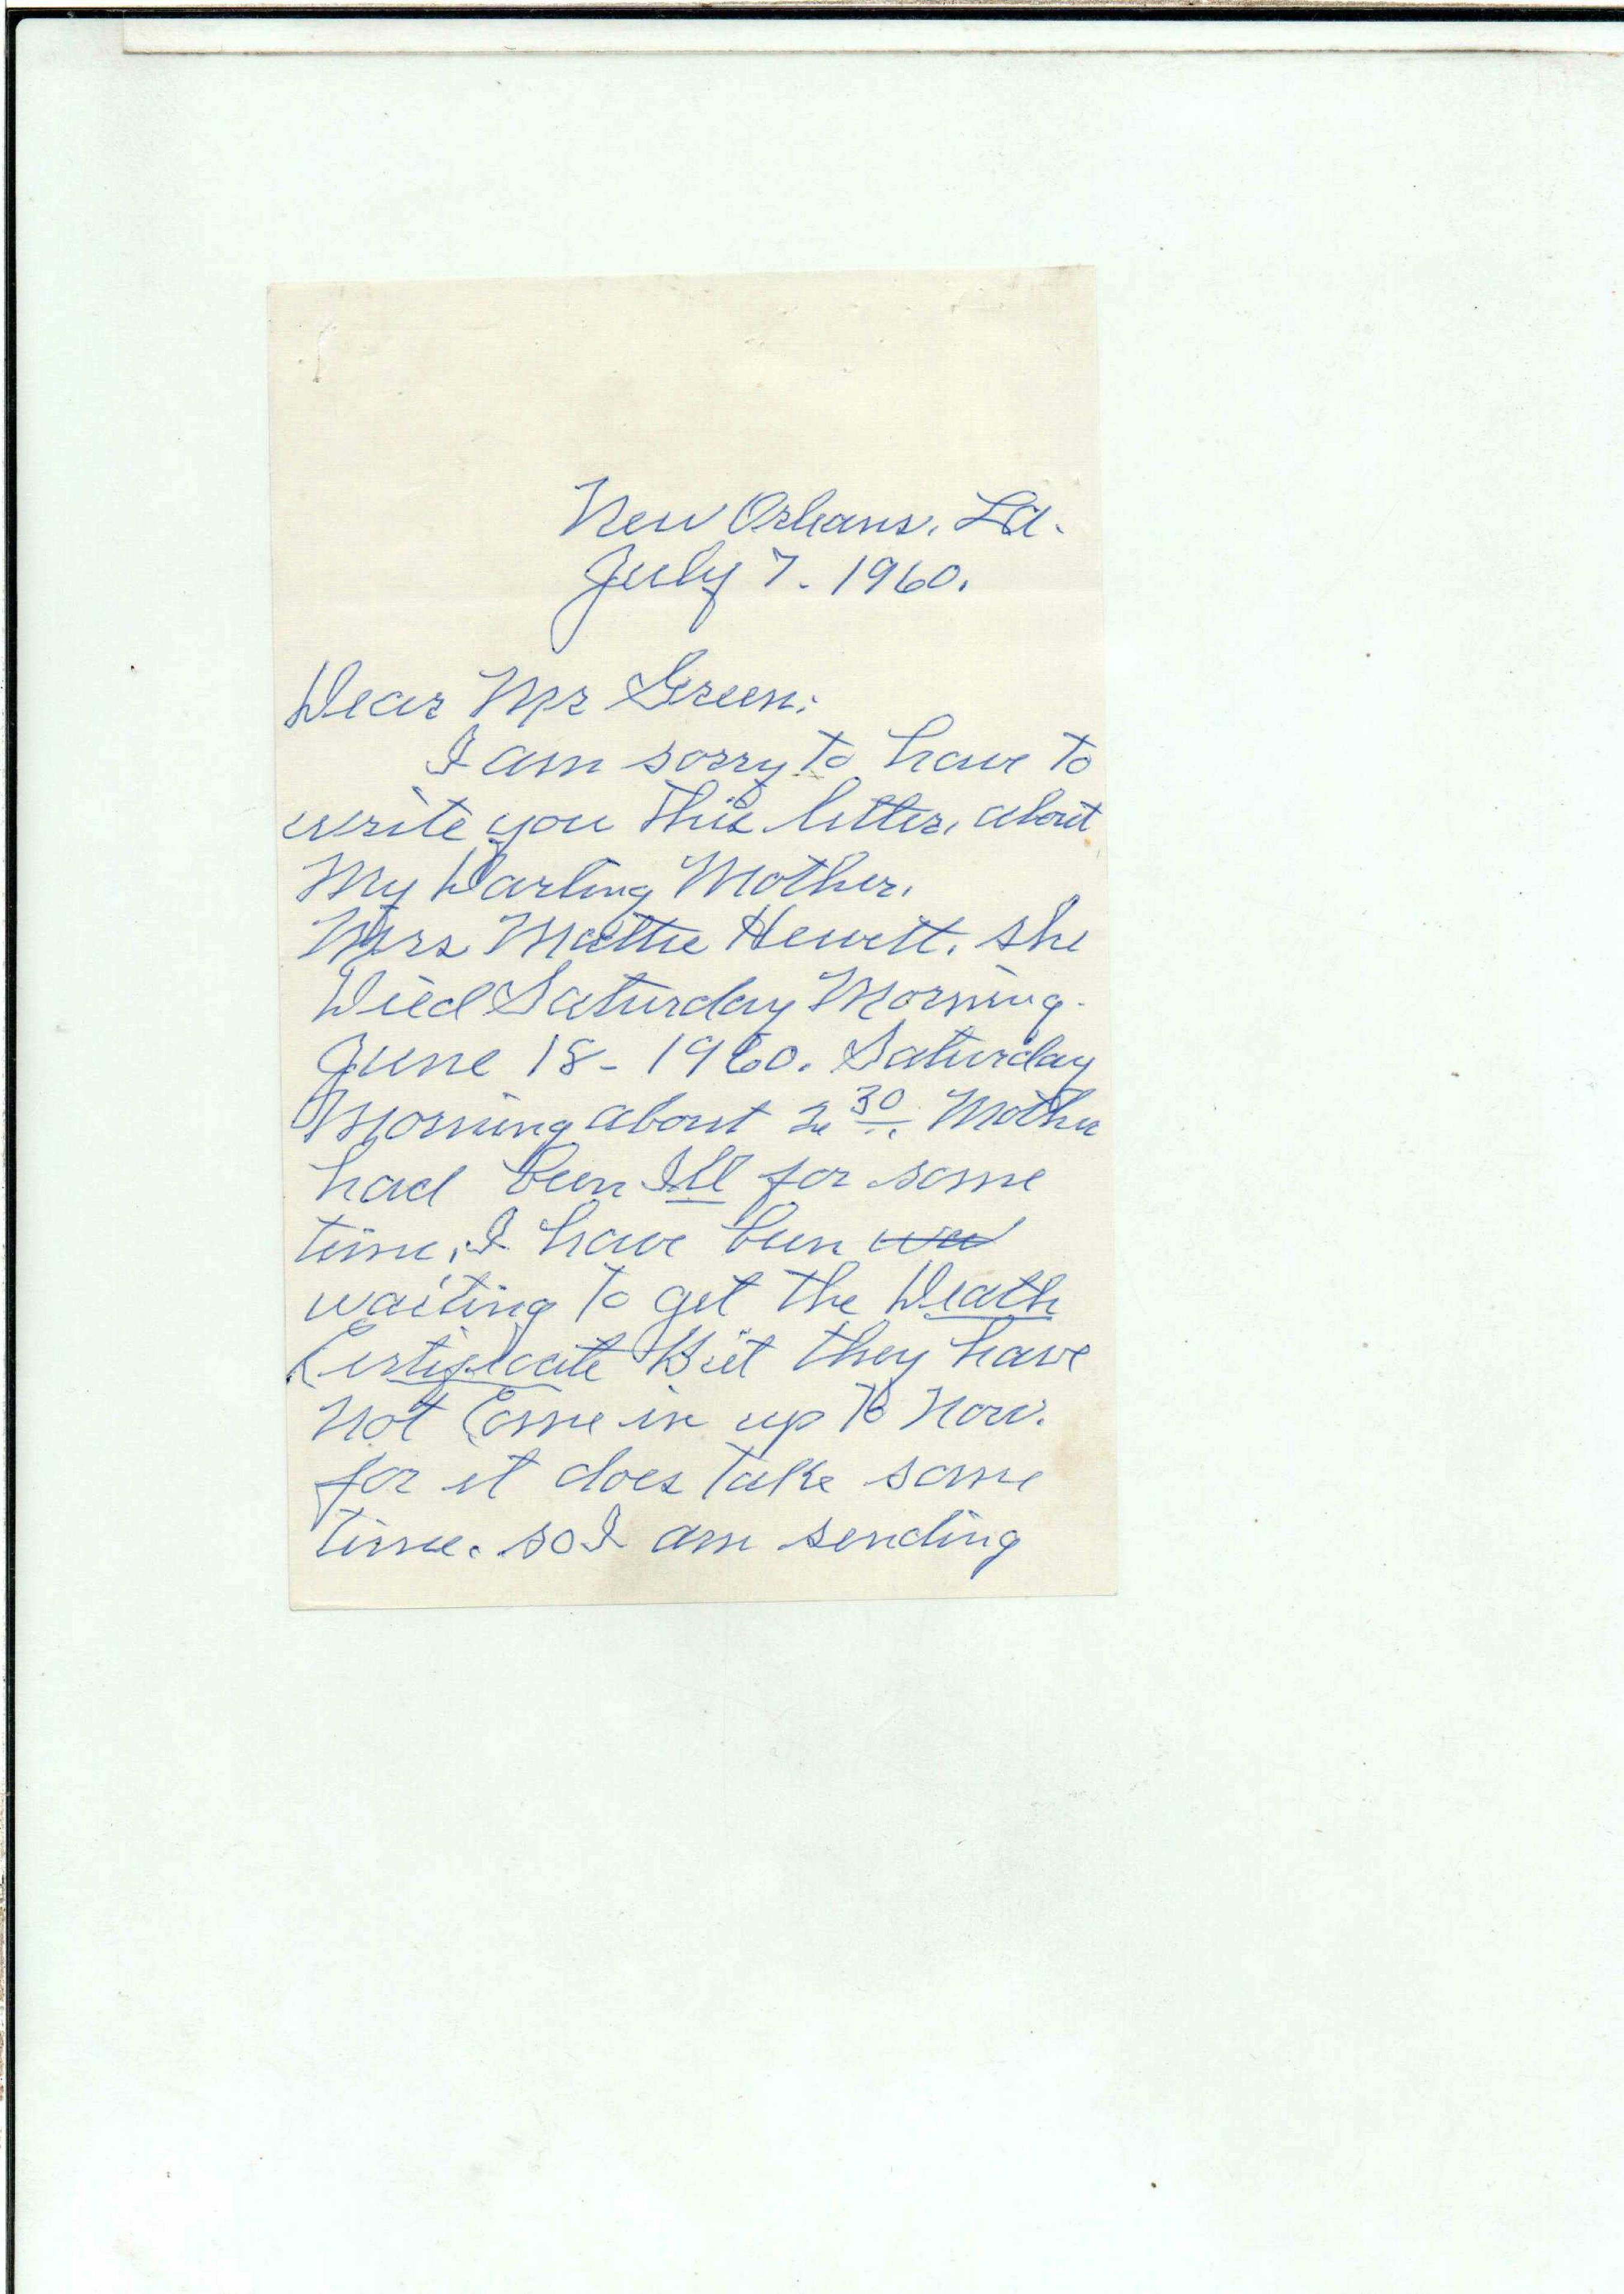 New Orleans, La.
July 7 - 1960.
Dear Mr Green:
I am sorry to have to
write you this letter, about
My Darling Mother.
Mrs Mattie Hewitt. she
Died Saturday Morning -
June 18 - 1960. Saturday
Morning about 2 30 Mother
had been Ill for some
time, I have been
waiting to get the Death
Certificate But they have
Not Come in up To Now.
for it does take some
time. so I am sending